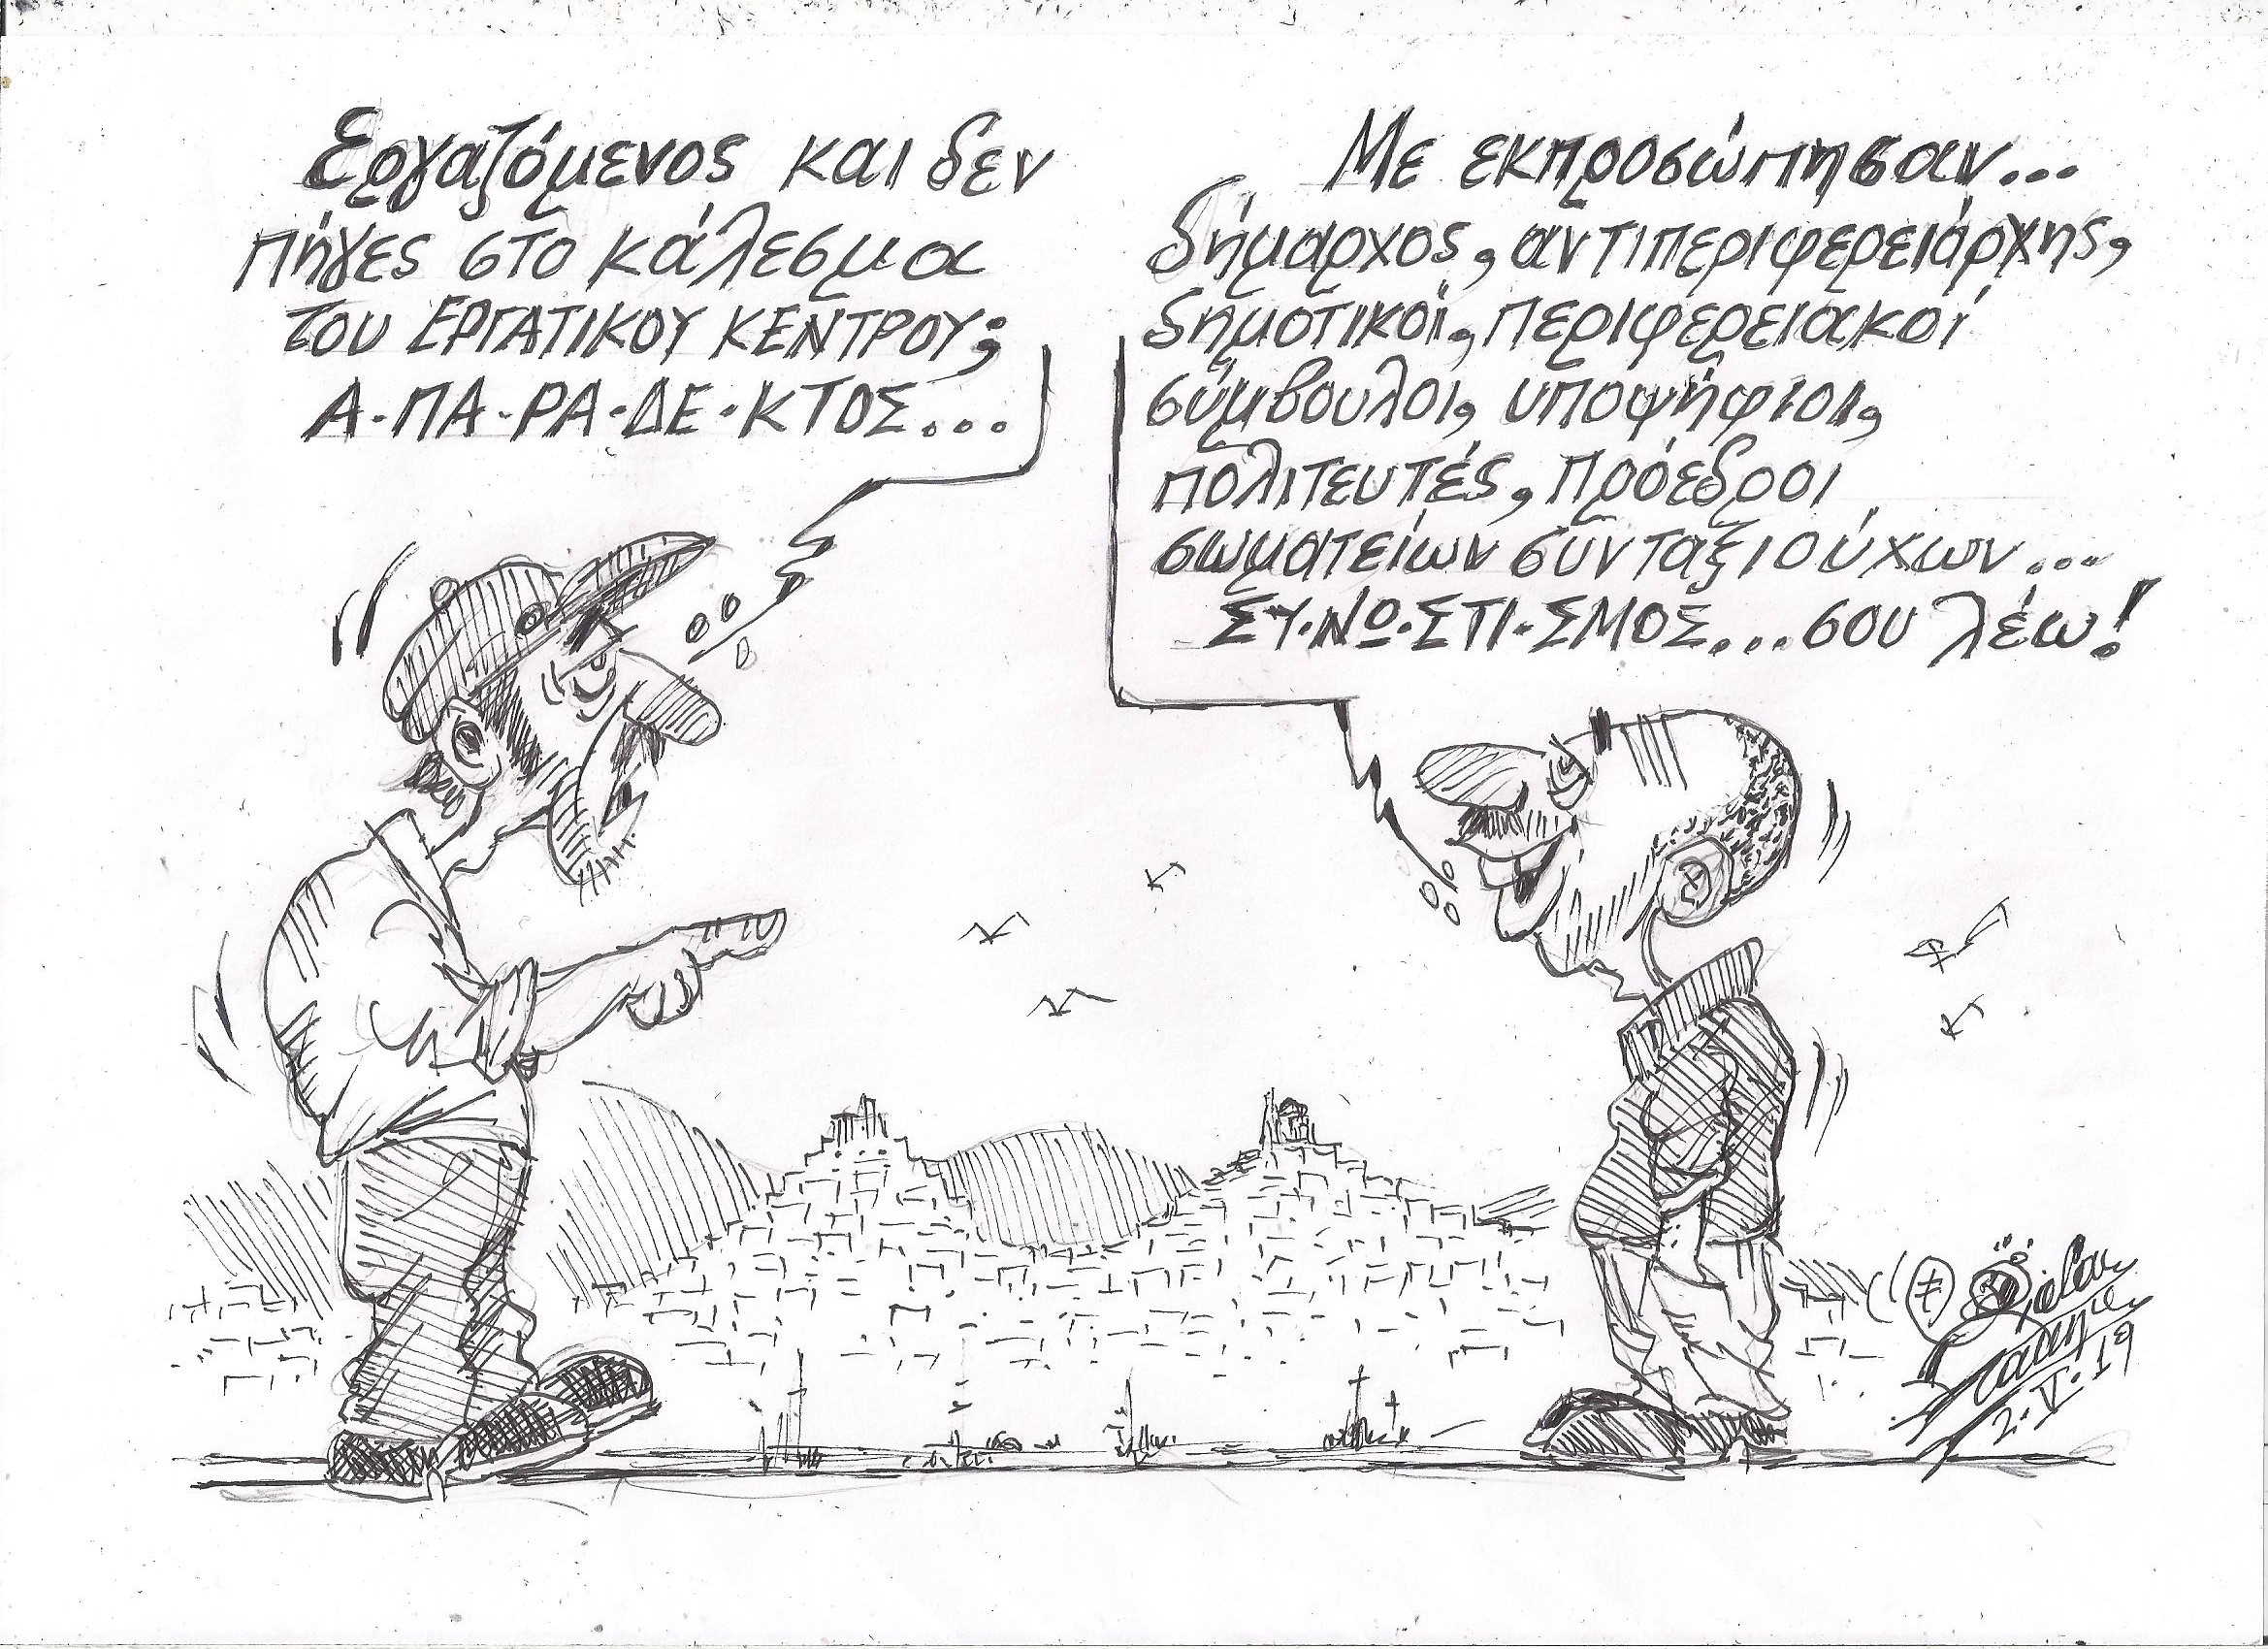 Εργαζόμενος και δεν
πήγες στο κάλεσμα
του ΕΡΓΑΤΙΚΟΥ ΚΕΝΤΡΟΥ;
Α·ΠΑ-ΡΑ·ΔΕ·ΚΤΟΣ...
Με εκπροσώπησαν...
δήμαρχος, αντιπεριφερειάρχης,
δημοτικοί, περιφερειακοί
σύμβουλοι, υποψήφιοι,
πολιτευτές, πρόεδροι
σωματείων συνταξιούχων...
ΣΥ·ΝΩ·ΣΤΙ·ΣΜΟΣ... σου λέω!
2·V·19